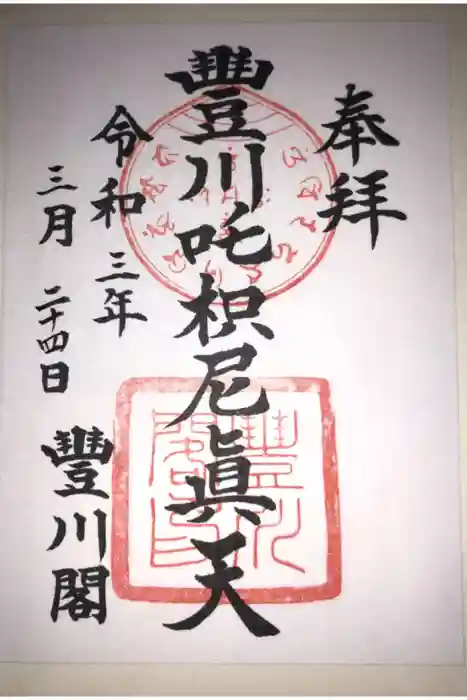 奉拜
豐川吒枳尼眞天
令和三年
三月二十四日
豐川閣